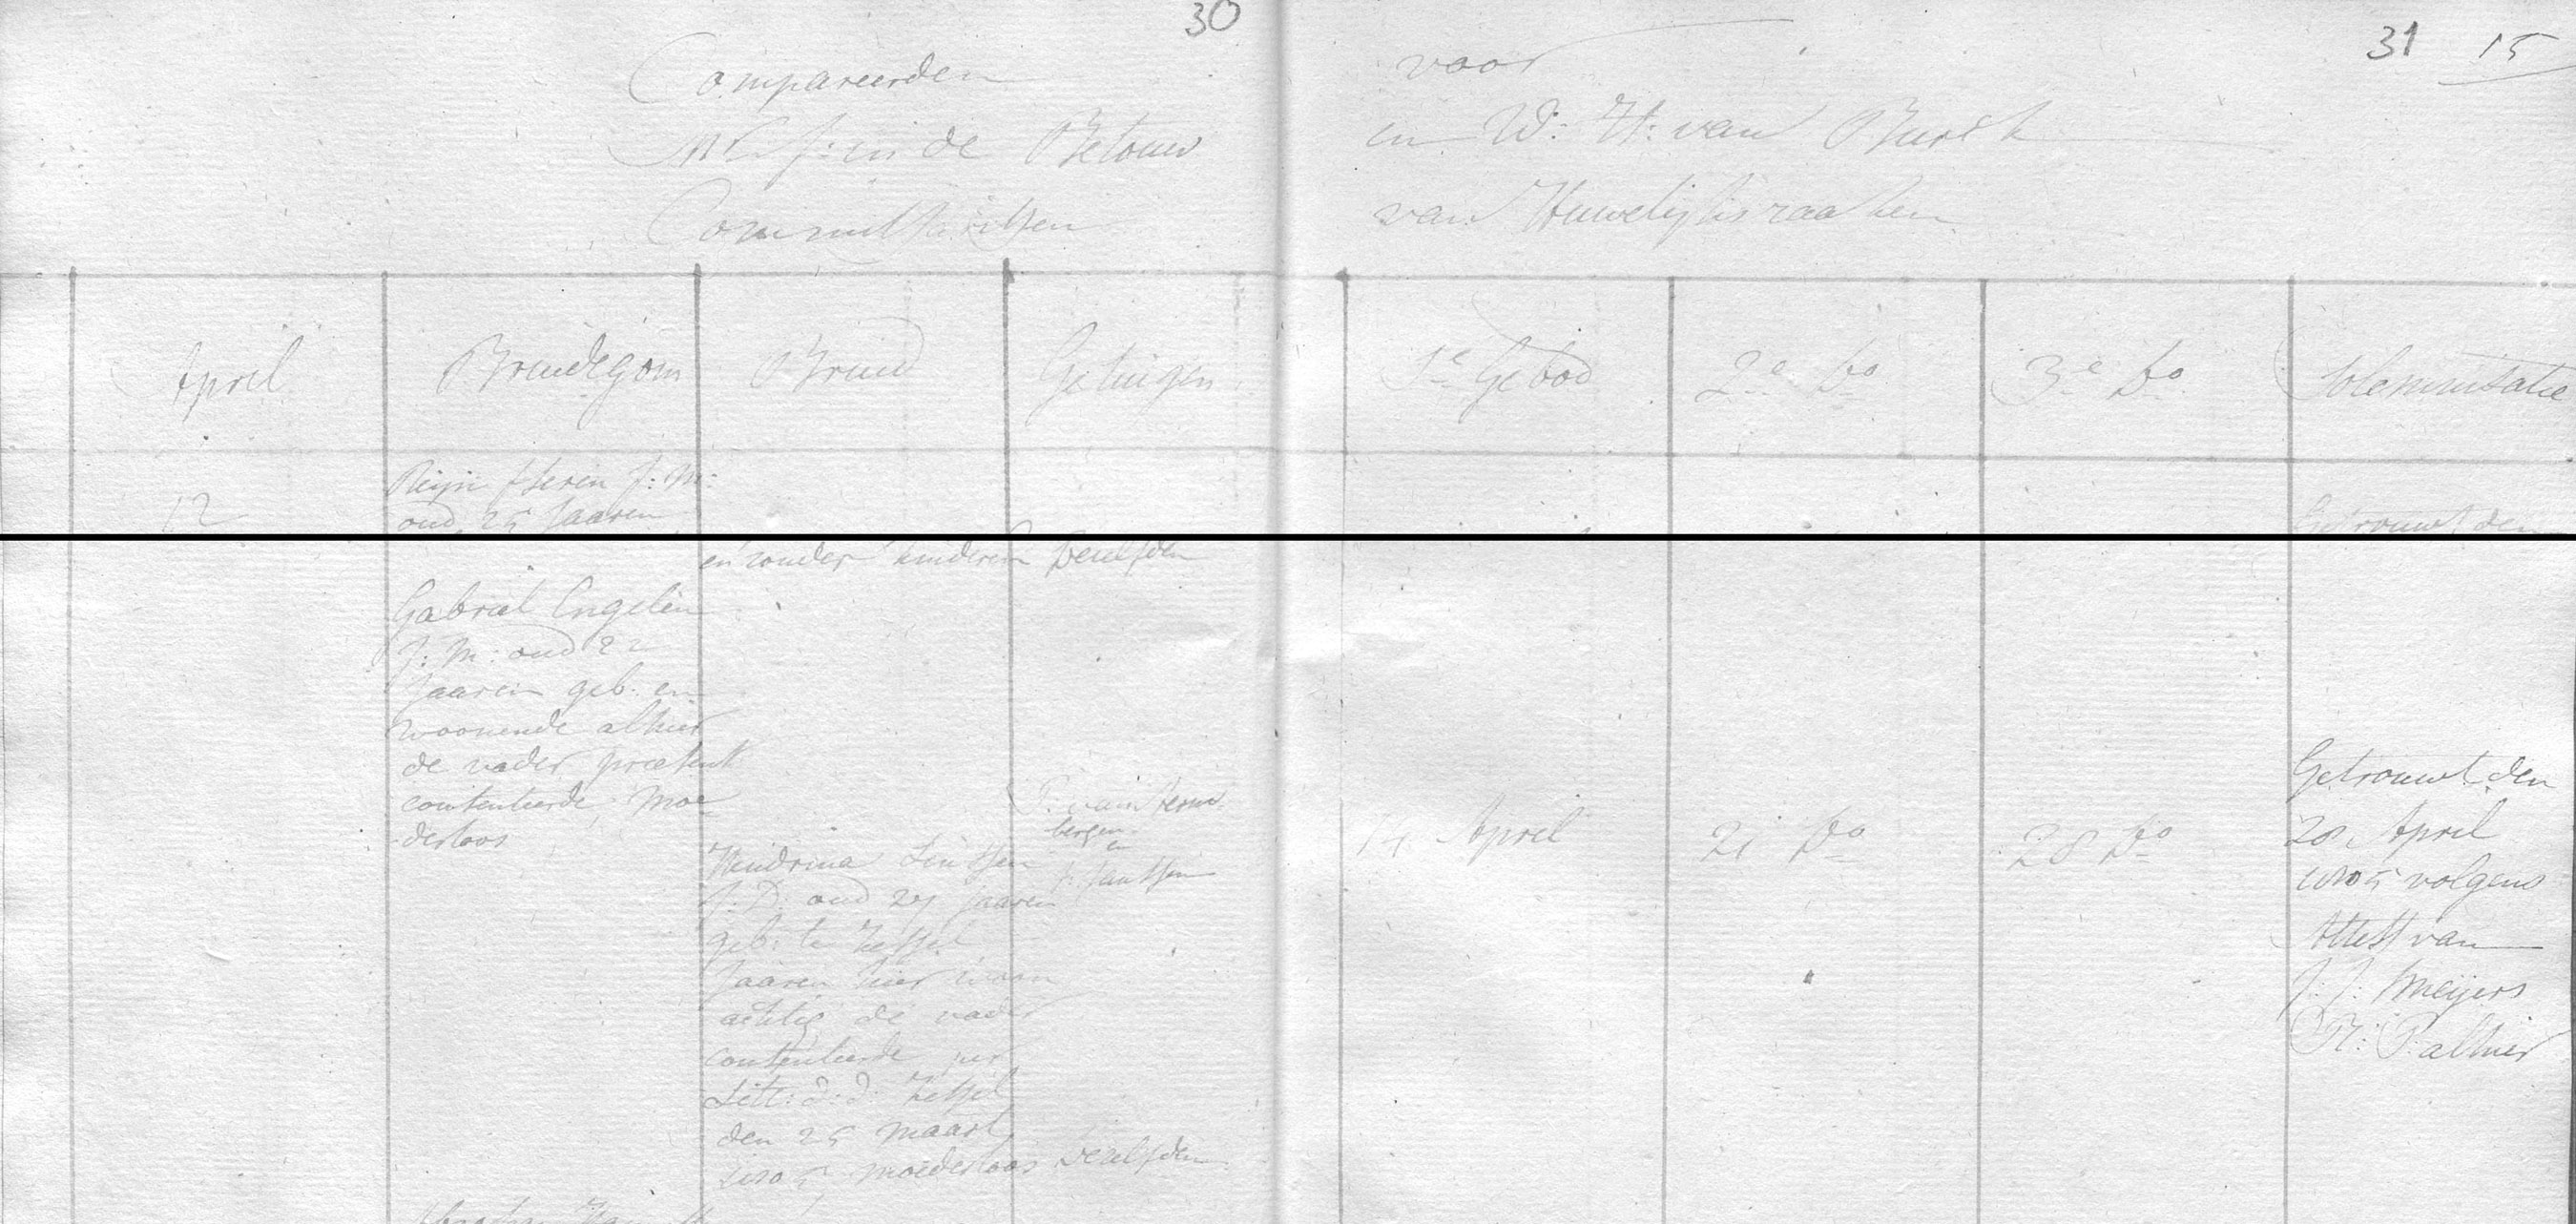 30
31 15
Compareerden voor
Mr J: in de Betouw en W: H: van Burck
Commissarissen van Huwelijksraaken
April Bruidegom Bruid Getuigen 1e Gebod 2e Do 3e Do Solemnisatie
12
J: M:
oud 25 Jaaren
Getrouwt den
en zonder kinderen
Derselfden
Gabriel Engelen
J: M: oud 22
Jaaren geb: en
woonende alhier
de vader præsent
contenteerde, moe
derloos
Hendrina
J: D: oud 27 Jaaren
geb: te Zessel
Jaaren hier woon
achtig de vader
contenteerde per
Litt: d:d: Zessel
den 25 maart
1805 moederloos
bergen
en
J: Janssen
Derselfden
14 April
21 Do
28 Do
Getrouwt den
28 April
1805 volgens
Attest van
J: J: Meijers
R: P: alhier